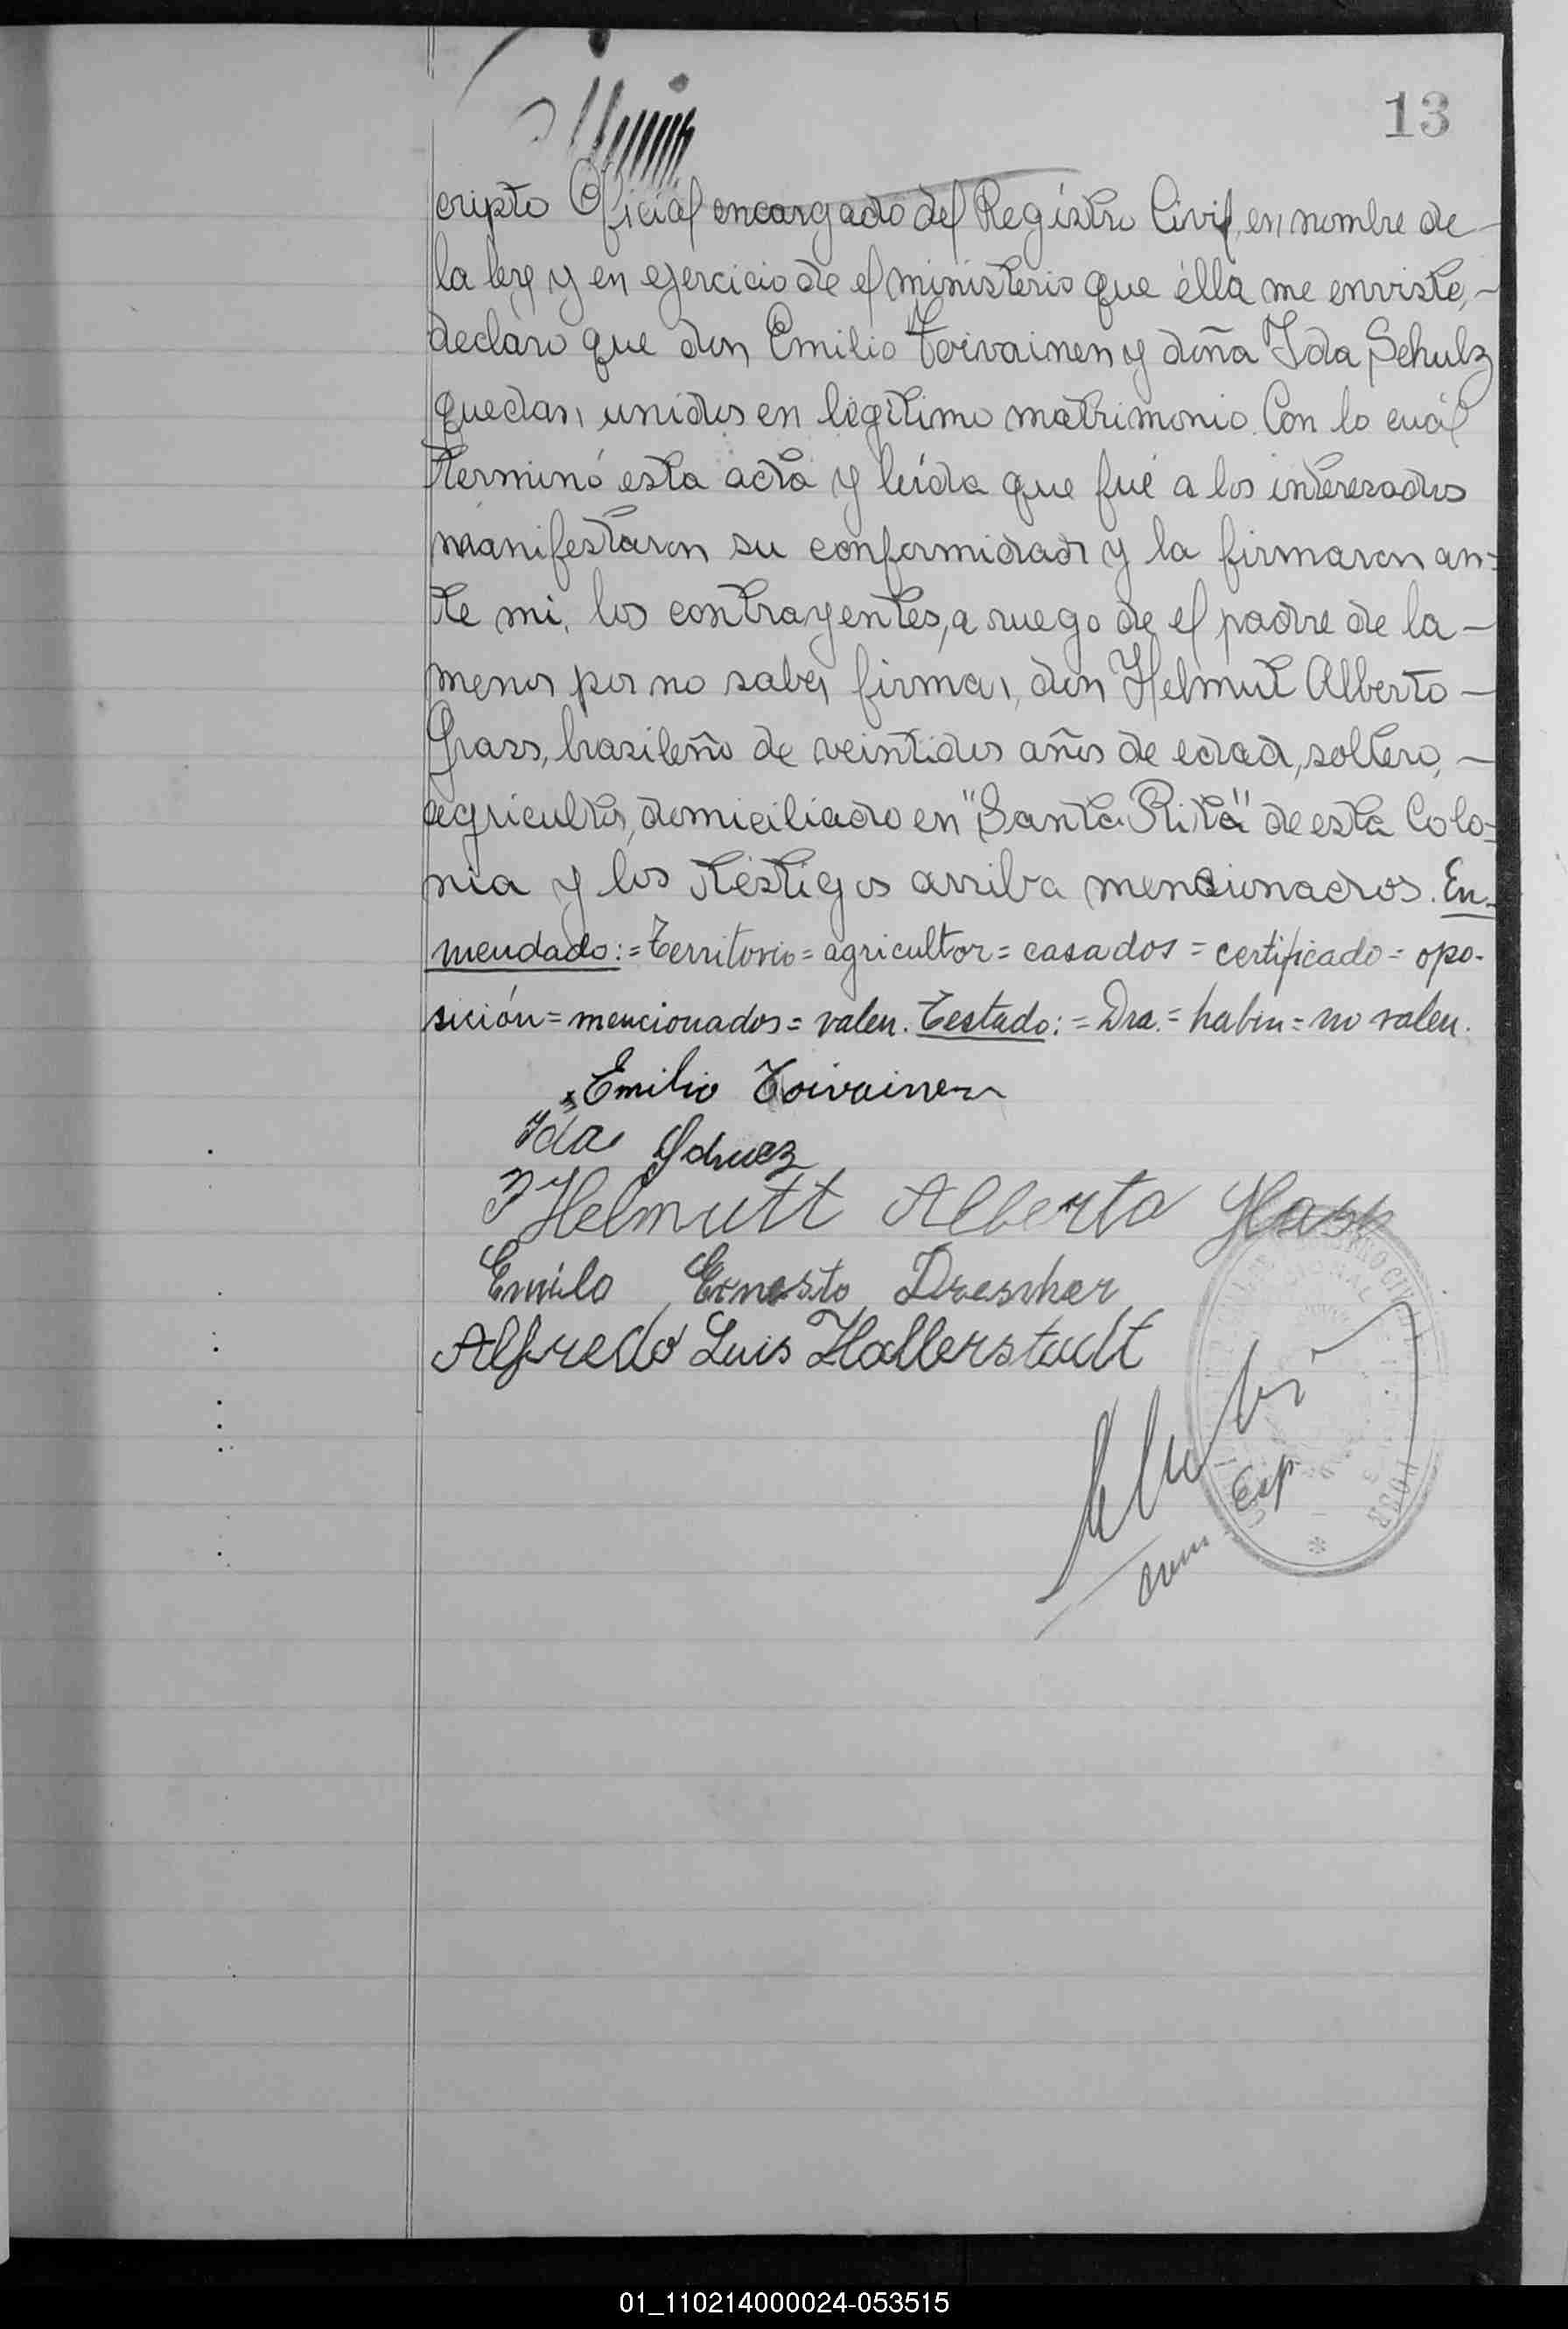 13
cripto Oficial encargado del Registro Civil, en nombre de —
la ley y en ejercicio de el ministerio que élla me enviste, —
declaro que don Emilio Toivainen y doña Ida Schulz
quedan unidos en legítimo matrimonio. Con lo cuál
terminó esta acta y leída que fué a los interesados
manifestaron su conformidad y la firmaron an=
te mi, los contrayentes, a ruego de el padre de la —
menor por no saber firmar, don Helmut Alberto —
Grass, brasileño de veintidos años de edad, soltero, —
agricultor, domiciliado en "Santa Rita" de esta Colo=
nia y los testigos arriba mencionados. En-
mendado: = Territorio = agricultor = casados = certificado = opo-
sición = mencionados = valen. Testado: = Dra. = haben = no valen.
Emilio Toivainen
Ida
Helmutt Alberto
Emilo Ernesto Drescher
Alfredo Luis Hallerstadt
01_110214000024-053515